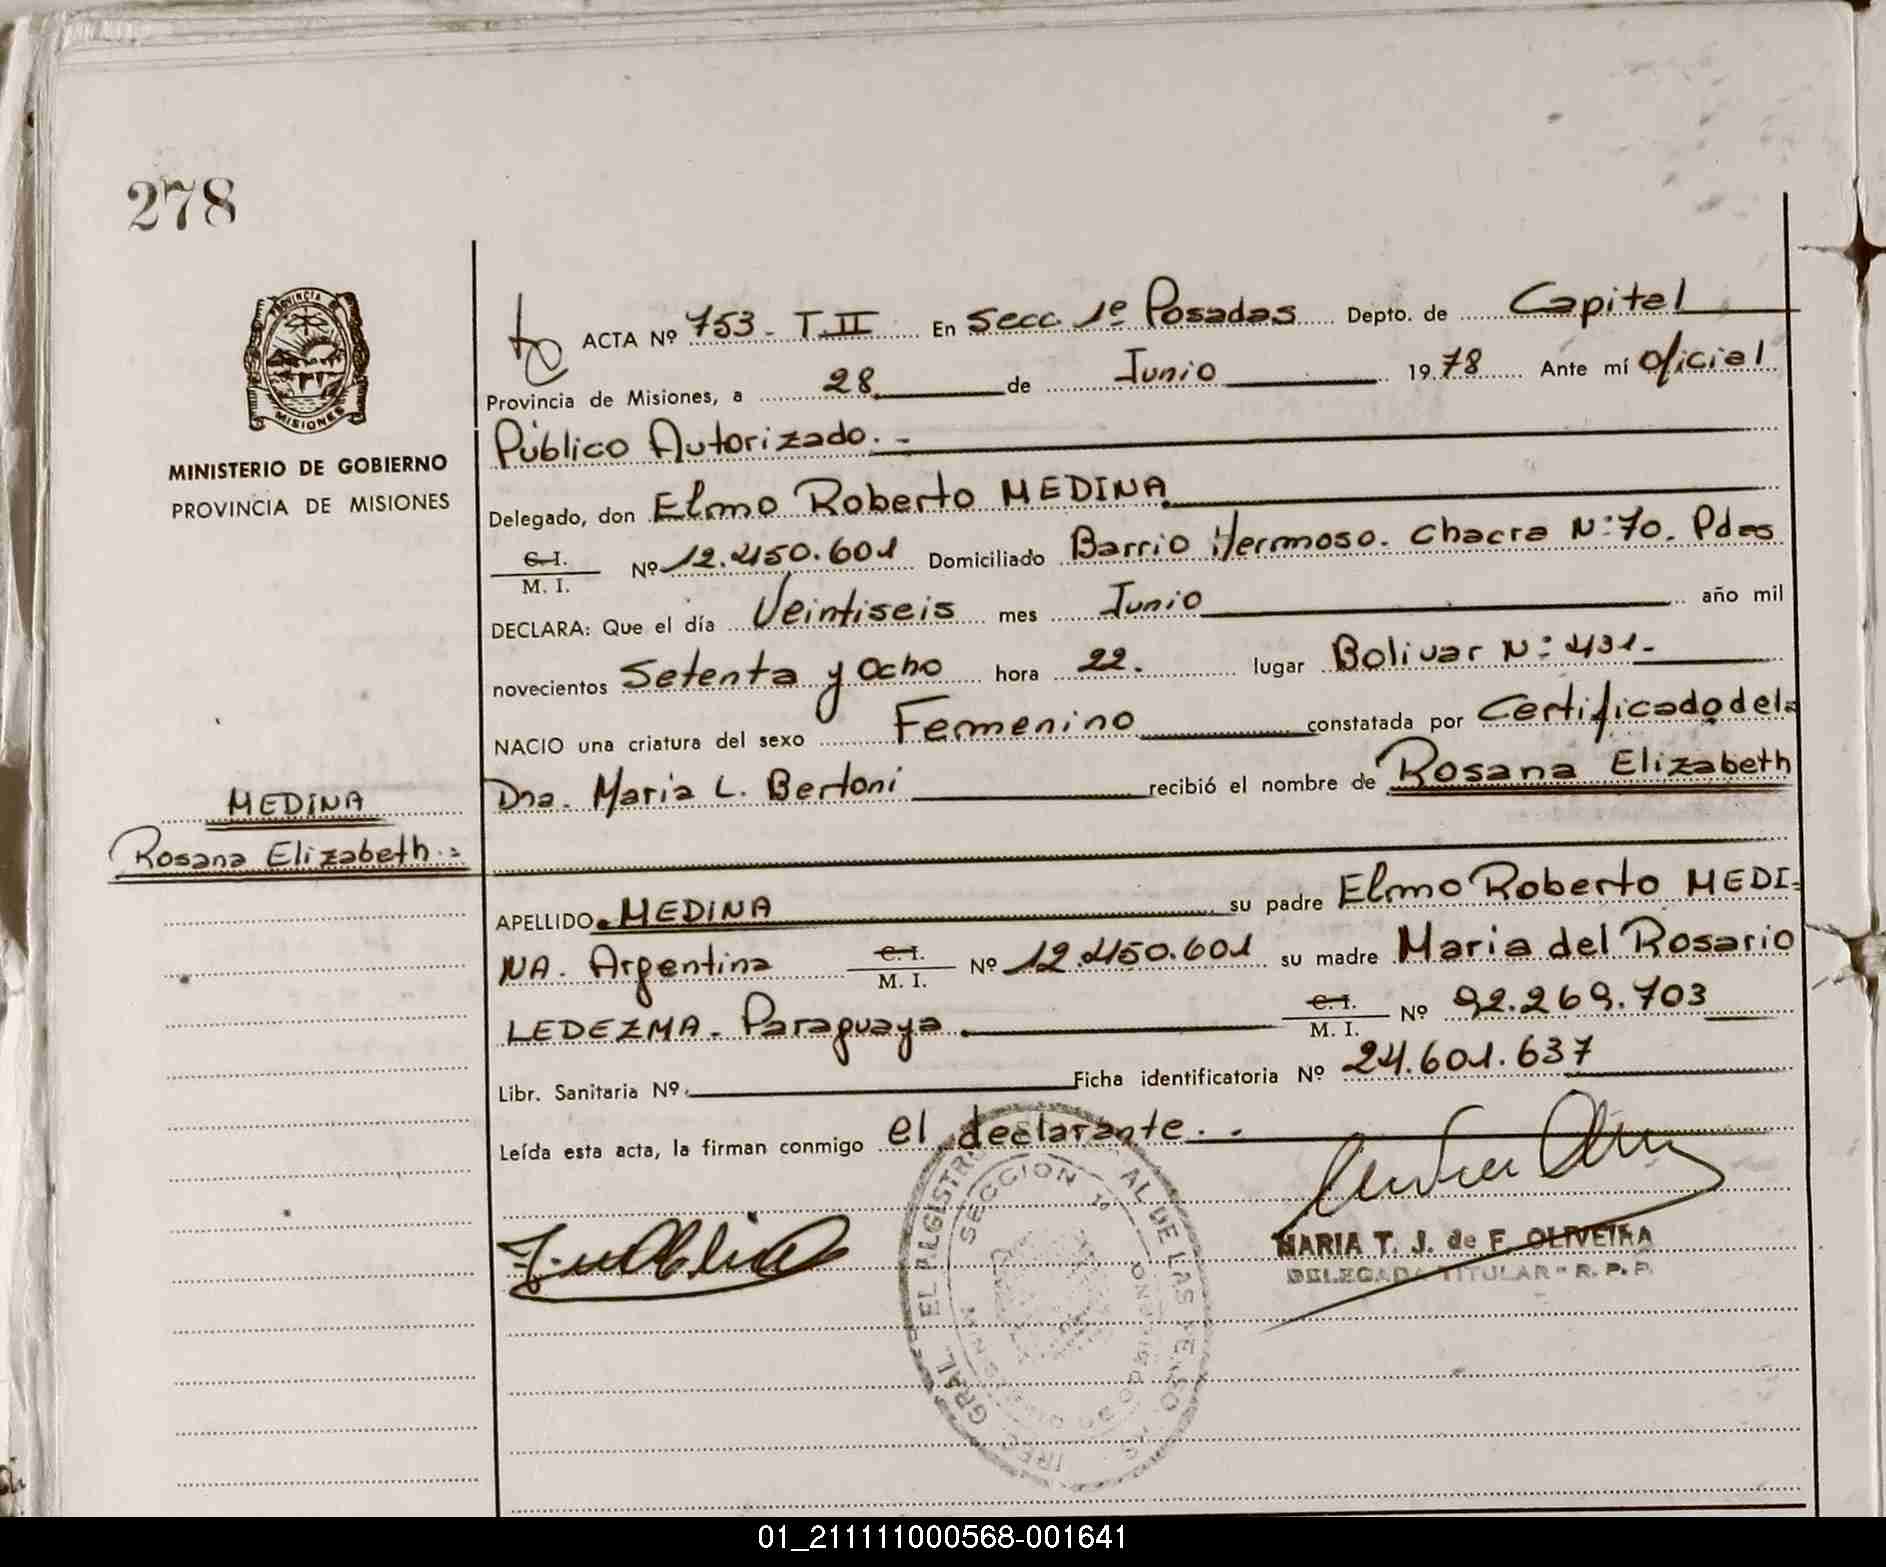 278
PROVINCIA DE
MISIONES
MINISTERIO DE GOBIERNO
PROVINCIA DE MISIONES
MEDINA
Rosana Elizabeth.=
ACTA Nº 753- T.II En Secc. 1º Posadas Depto. de Capital
Provincia de Misiones, a 28 de Junio 1978 Ante mí Oficial
Público Autorizado.-
Delegado, don Elmo Roberto MEDINA
C. I.
M. I. Nº 12.450.601 Domiciliado Barrio Hermoso. Chacra N:70. Pdas
DECLARA: Que el día Veintiseis mes Junio año mil
novecientos Setenta y Ocho hora 22. lugar Bolivar N: 431.
NACIO una criatura del sexo Femenino constatada por Certificado de la
Dra. Maria L. Bertoni recibió el nombre de Rosana Elizabeth
APELLIDO MEDINA su padre Elmo Roberto MEDI=
NA. Argentina C. I. M. I. Nº 12.450.601 su madre Maria del Rosario
LEDEZMA. Paraguaya. C. I. M. I. Nº 92.269.703
Libr. Sanitaria Nº Ficha identificatoria Nº 24.601.637
Leída esta acta, la firman conmigo el declarante.-
SECCION 1º
MARIA T. J. de F. OLIVEIRA
DELEGADA TITULAR - R. P. P.
01_211111000568-001641